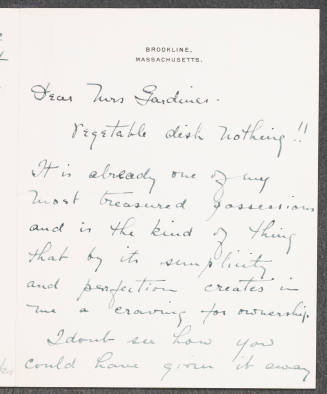 BROOKLINE,
MASSACHUSETTS.
Dear Mrs Gardner-
Vegetable dish nothing!!
It is already one of my
most treasured possessions
and is the kind of thing
that by its simplicity
and perfection creates in
me a craving for ownership.
I dont see how you
could have given it away